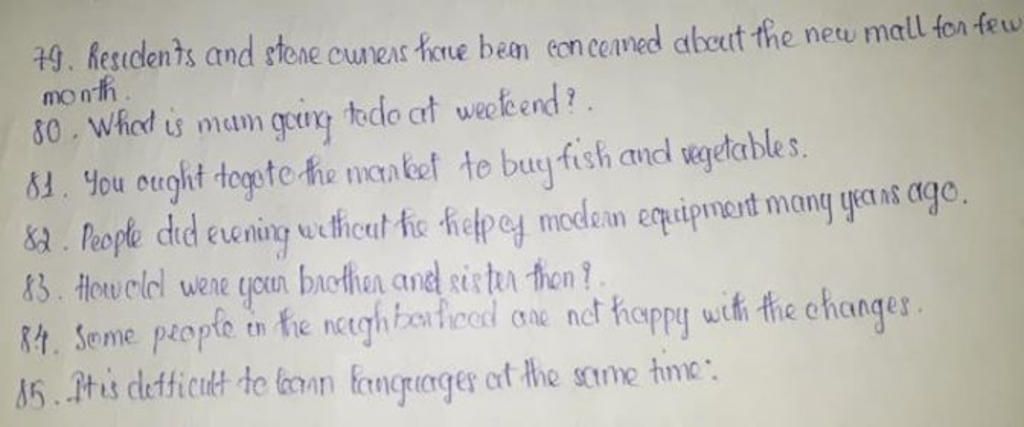 79. Residents and store owners have been concerned about the new mall for few
month.
80. What is mum going to do at weekend?.
81. You ought to go to the market to buy fish and vegetables.
82. People did evening without the help of modern equipment many years ago.
83. How old were your brother and sister then?.
84. Some people in the neighborhood are not happy with the changes.
85. It is difficult to learn languages at the same time.